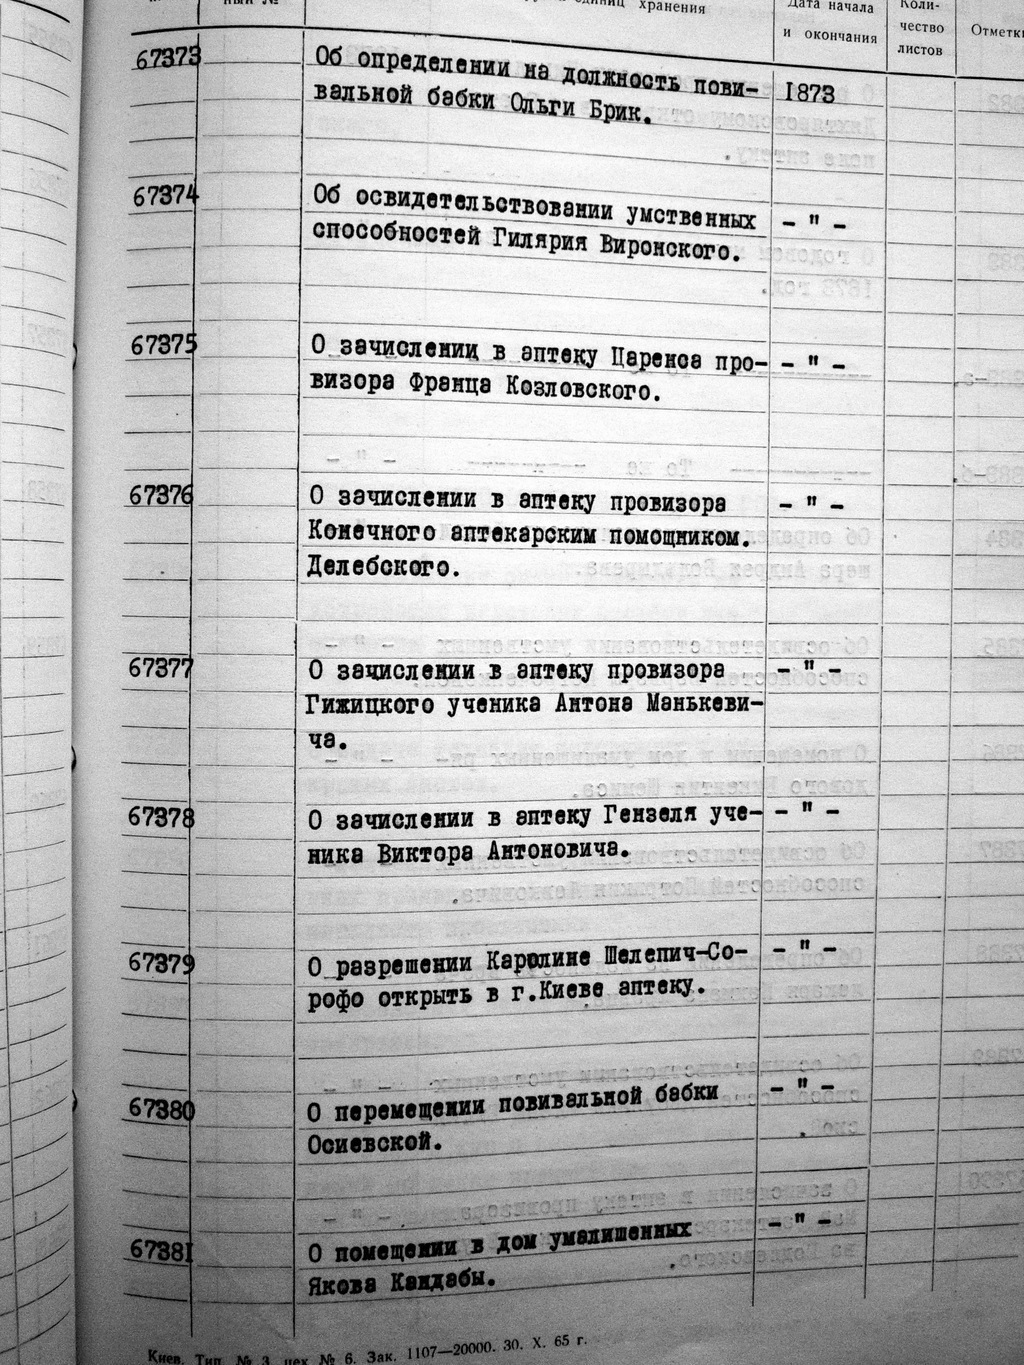 единиц хранения
Дата начала
и окончания
Коли-
чество
листов
67373 Об определении на должность пови- 1873
вальной бабки Ольги Брик.
67374 Об освидетельствовании умственных - " -
способностей Гилярия Виронского.
67375 О зачислении в аптеку Царенса про- - " -
визора Франца Козловского.
67376 О зачислении в аптеку провизора - " -
Конечного аптекарским помощником.
Делебского.
67377 О зачислении в аптеку провизора - " -
Гижицкого ученика Антона Манькеви-
ча.
67378 О зачислении в аптеку Гензеля уче- - " -
ника Виктора Антоновича.
67379 О разрешении Каролине Шелепич-Со- - " -
рофо открыть в г.Киеве аптеку.
67380 О перемещении повивальной бабки - " -
Осиевской.
67381 О помещении в дом умалишенных - " -
Якова Кандабы.
Киев. Тип. № 3, цех № 6. Зак. 1107—20000. 30. X. 65 г.